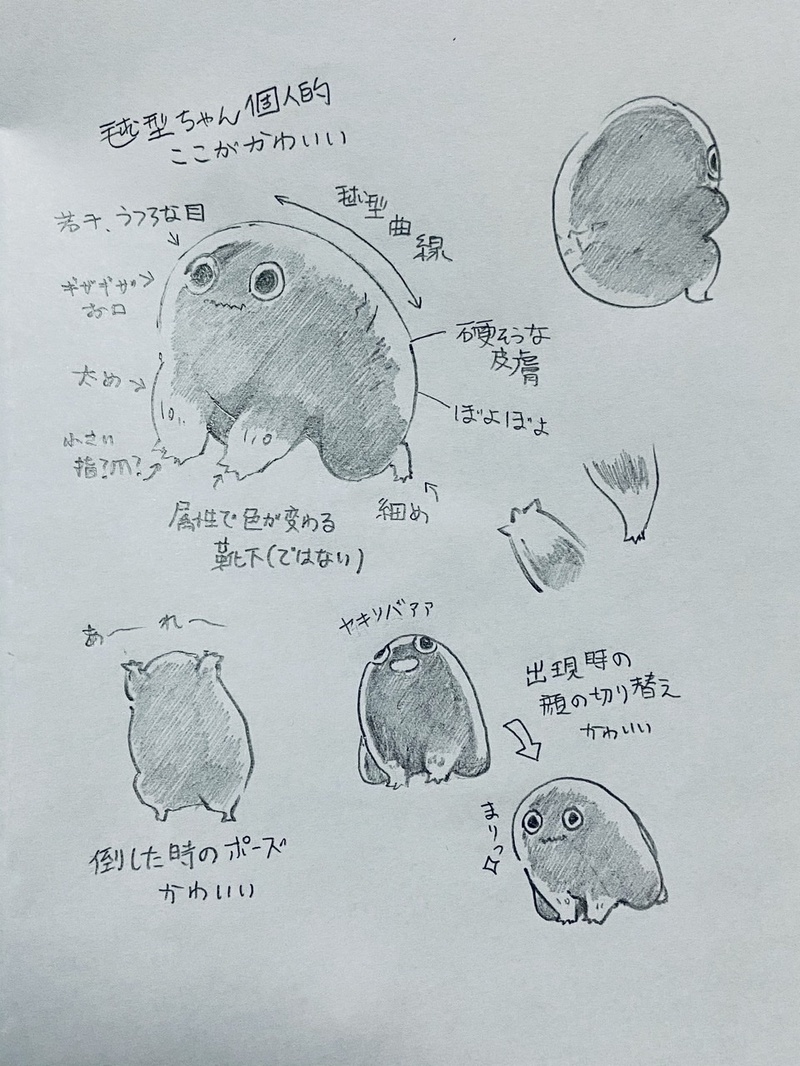 毬型ちゃん個人的
ここがかわいい
若干、うつろな目
毬型
曲
線
ギザギザな
お口
硬そうな
皮膚
太め
ぼよぼよ
小さい
指?爪?
細め
属性で色が変わる
靴下(ではない)
あ〜れ〜
ヤキソバァァ
出現時の
顔の切り替え
かわいい
まりっ☆
倒した時のポーズ
かわいい